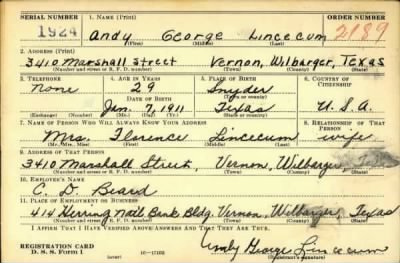 SERIAL NUMBER 1. NAME (Print) ORDER NUMBER
1924 Andy George Lincecum 2189
(First) (Middle) (Last)
2. ADDRESS (Print)
3410 Marshall Street Vernon, Wilbarger, Texas
(Number and street or R. F. D. number) (Town) (County) (State)
3. TELEPHONE 4. AGE IN YEARS 5. PLACE OF BIRTH 6. COUNTRY OF CITIZENSHIP
None 29 Snyder
DATE OF BIRTH (Town or county)
Jan. 7, 1911 Texas U. S. A.
(Exchange) (Number) (Mo.) (Day) (Yr.) (State or country)
7. NAME OF PERSON WHO WILL ALWAYS KNOW YOUR ADDRESS 8. RELATIONSHIP OF THAT PERSON
Mrs. Florence Lincecum wife
(Mr., Mrs., Miss) (First) (Middle) (Last)
9. ADDRESS OF THAT PERSON
3410 Marshall Street, Vernon, Wilbarger, Texas
(Number and street or R. F. D. number) (Town) (County) (State)
10. EMPLOYER'S NAME
C. D. Beard
11. PLACE OF EMPLOYMENT OR BUSINESS
414 Herring Natl Bank Bldg. Vernon, Wilbarger, Texas
(Number and street or R. F. D. number) (Town) (County) (State)
I AFFIRM THAT I HAVE VERIFIED ABOVE ANSWERS AND THAT THEY ARE TRUE.
REGISTRATION CARD
D. S. S. Form 1 (over) Andy George Lincecum
(Registrant's signature)